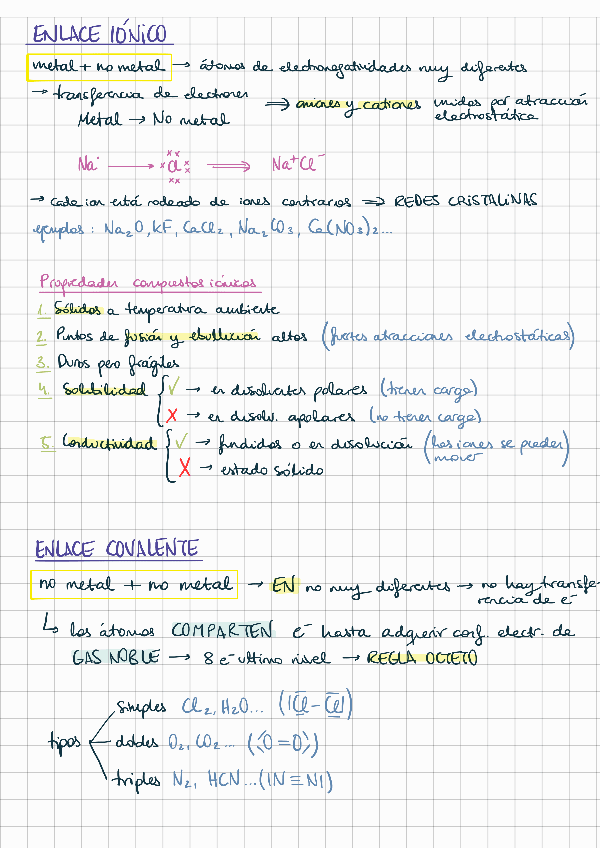 ENLACE IÓNICO
metal + no metal → átomos de electronegatividades muy diferentes
→ transferencia de electrones ⟹ aniones y cationes unidos por atracción
Metal → No metal electrostática
Na· → Cl ⟹ Na⁺Cl⁻
→ cada ion está rodeado de iones contrarios ⟹ REDES CRISTALINAS
ejemplos: Na₂O, KF, CaCl₂, Na₂CO₃, Ca(NO₃)₂...
Propiedades compuestos iónicos
1. Sólidos a temperatura ambiente
2. Puntos de fusión y ebullición altos (fuertes atracciones electrostáticas)
3. Duros pero frágiles
4. Solubilidad { ✓ → en disolventes polares (tienen carga)
X → en disolv. apolares (no tienen carga)
5. Conductividad { ✓ → fundidos o en disolución (los iones se pueden
mover)
X → estado sólido
ENLACE COVALENTE
no metal + no metal → EN no muy diferentes → no hay transfe-
rencia de e⁻
↳ los átomos COMPARTEN e⁻ hasta adquirir conf. electr. de
GAS NOBLE → 8 e⁻ ultimo nivel → REGLA OCTETO
simples Cl₂, H₂O... (|Cl – Cl|)
tipos dobles O₂, CO₂... (⟨O=O⟩)
triples N₂, HCN...(|N≡N|)